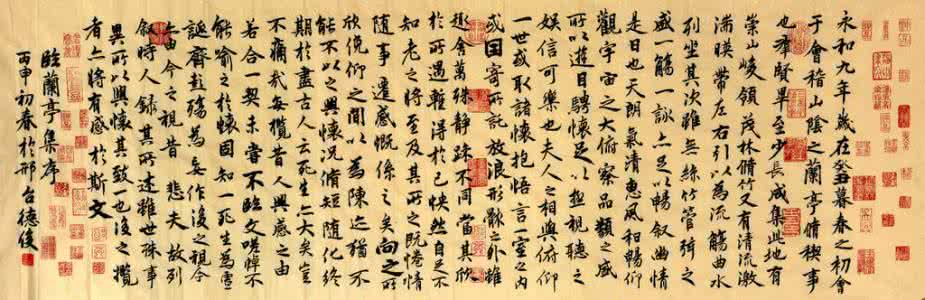 永和九年歲在癸丑暮春之初會
于會稽山陰之蘭亭脩禊事
也群賢畢至少長咸集此地有
崇山峻領茂林脩竹又有清流激
湍暎帶左右引以為流觴曲水
列坐其次雖無絲竹管弦之
盛一觴一詠亦足以暢叙幽情
是日也天朗氣清惠風和暢仰
觀宇宙之大俯察品類之盛
所以遊目騁懷足以極視聽之
娛信可樂也夫人之相與俯仰
一世或取諸懷抱悟言一室之內
或因寄所託放浪形骸之外雖
趣舍萬殊静躁不同當其欣
於所遇蹔得於己怏然自足不
知老之將至及其所之既惓情
隨事遷感慨係之矣向之所
欣俛仰之間以為陳迹猶不
能不以之興懷況脩短隨化終
期於盡古人云死生亦大矣豈
不痛哉每攬昔人興感之由
若合一契未嘗不臨文嗟悼不
能喻之於懷固知一死生為虛
誕齊彭殤為妄作後之視今
亦由今之視昔悲夫故列
叙時人錄其所述雖世殊事
異所以興懷其致一也後之攬
者亦將有感於斯文
臨蘭亭集序
丙申初春於邢台德俊